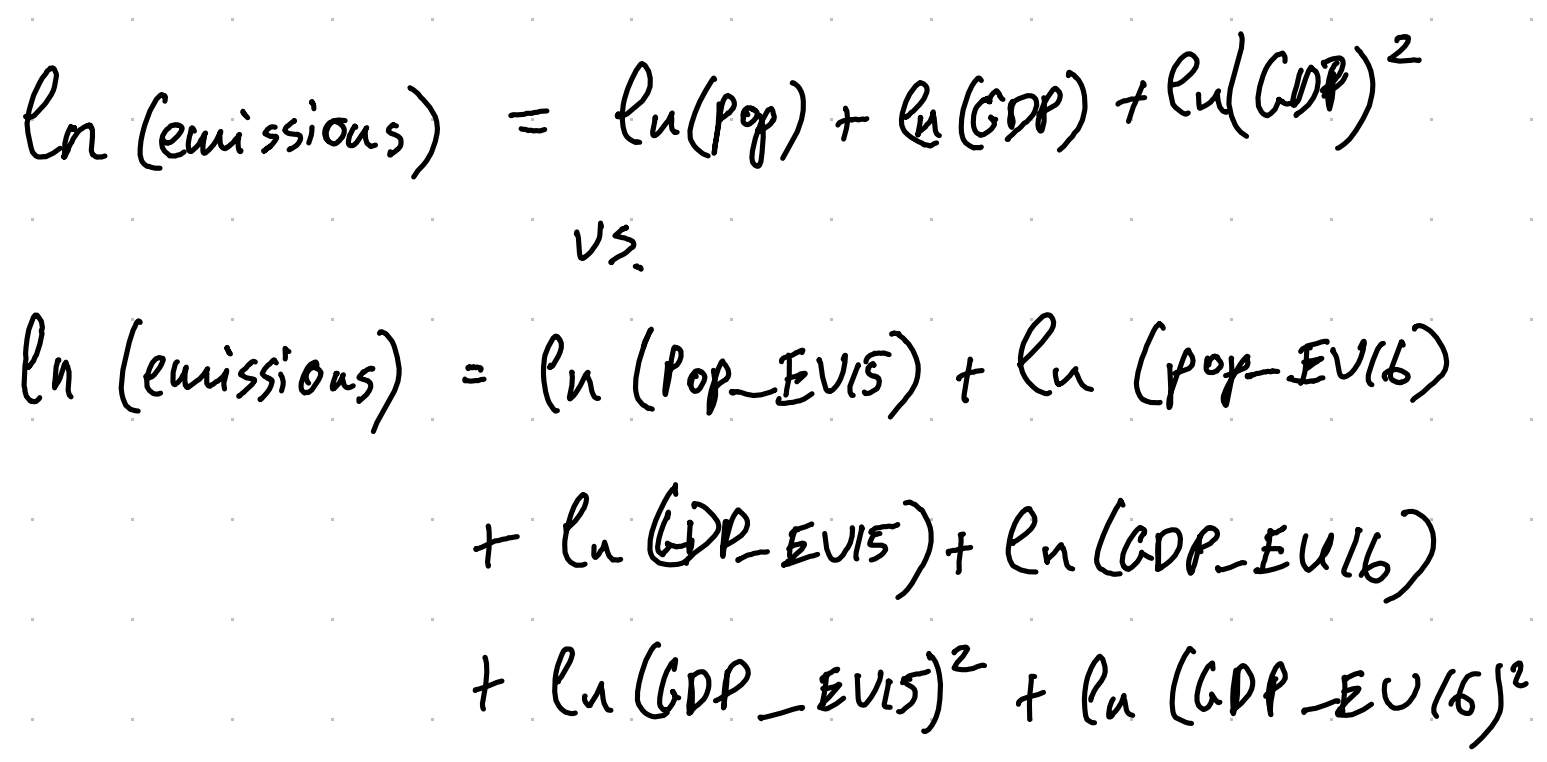 ln (emissions) = ln(Pop) + ln(GDP) + ln(GDP)²
vs.
ln (emissions) = ln (Pop_EU15) + ln (pop_EU16)
+ ln (GDP_EU15) + ln (GDP_EU16)
+ ln (GDP_EU15)² + ln (GDP_EU16)²